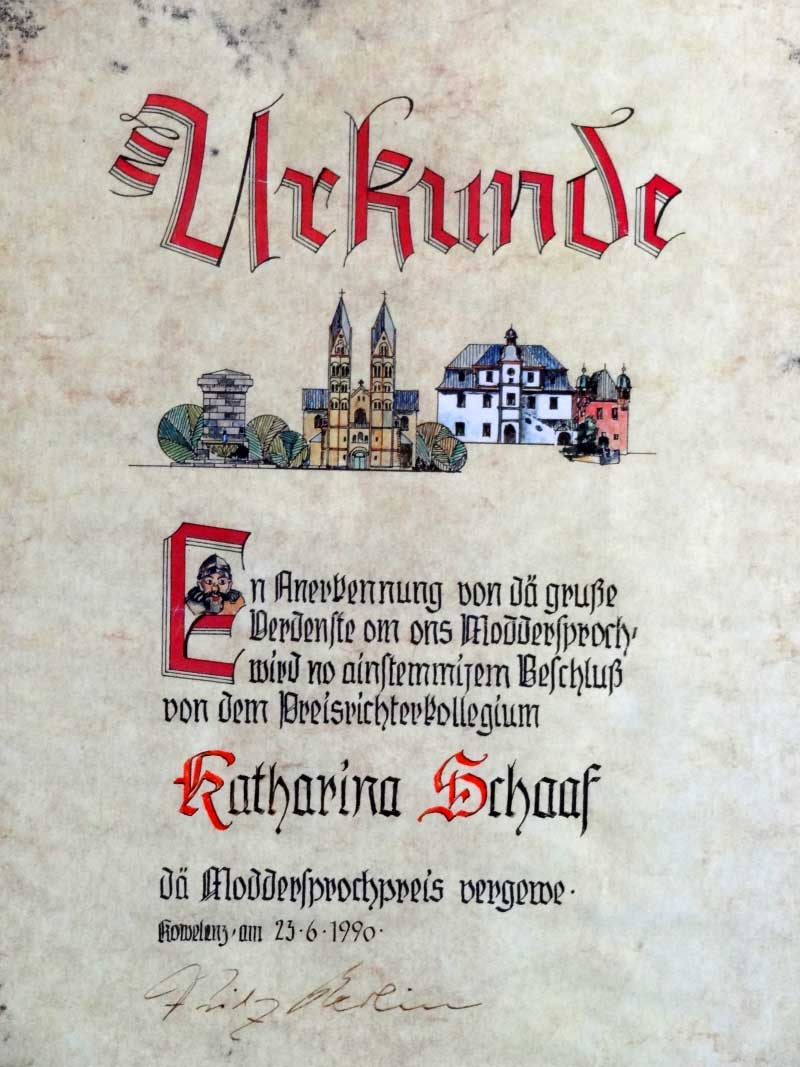 Urkunde
En Anerkennung von dä gruße
Verdenste om ons Moddersproch,
wird no ainstemmijem Beschluß
von dem Preisrichterkollegium
Katharina Schaaf
dä Moddersprochpreis vergewe.
Kowelenz, am 23.6.1990.